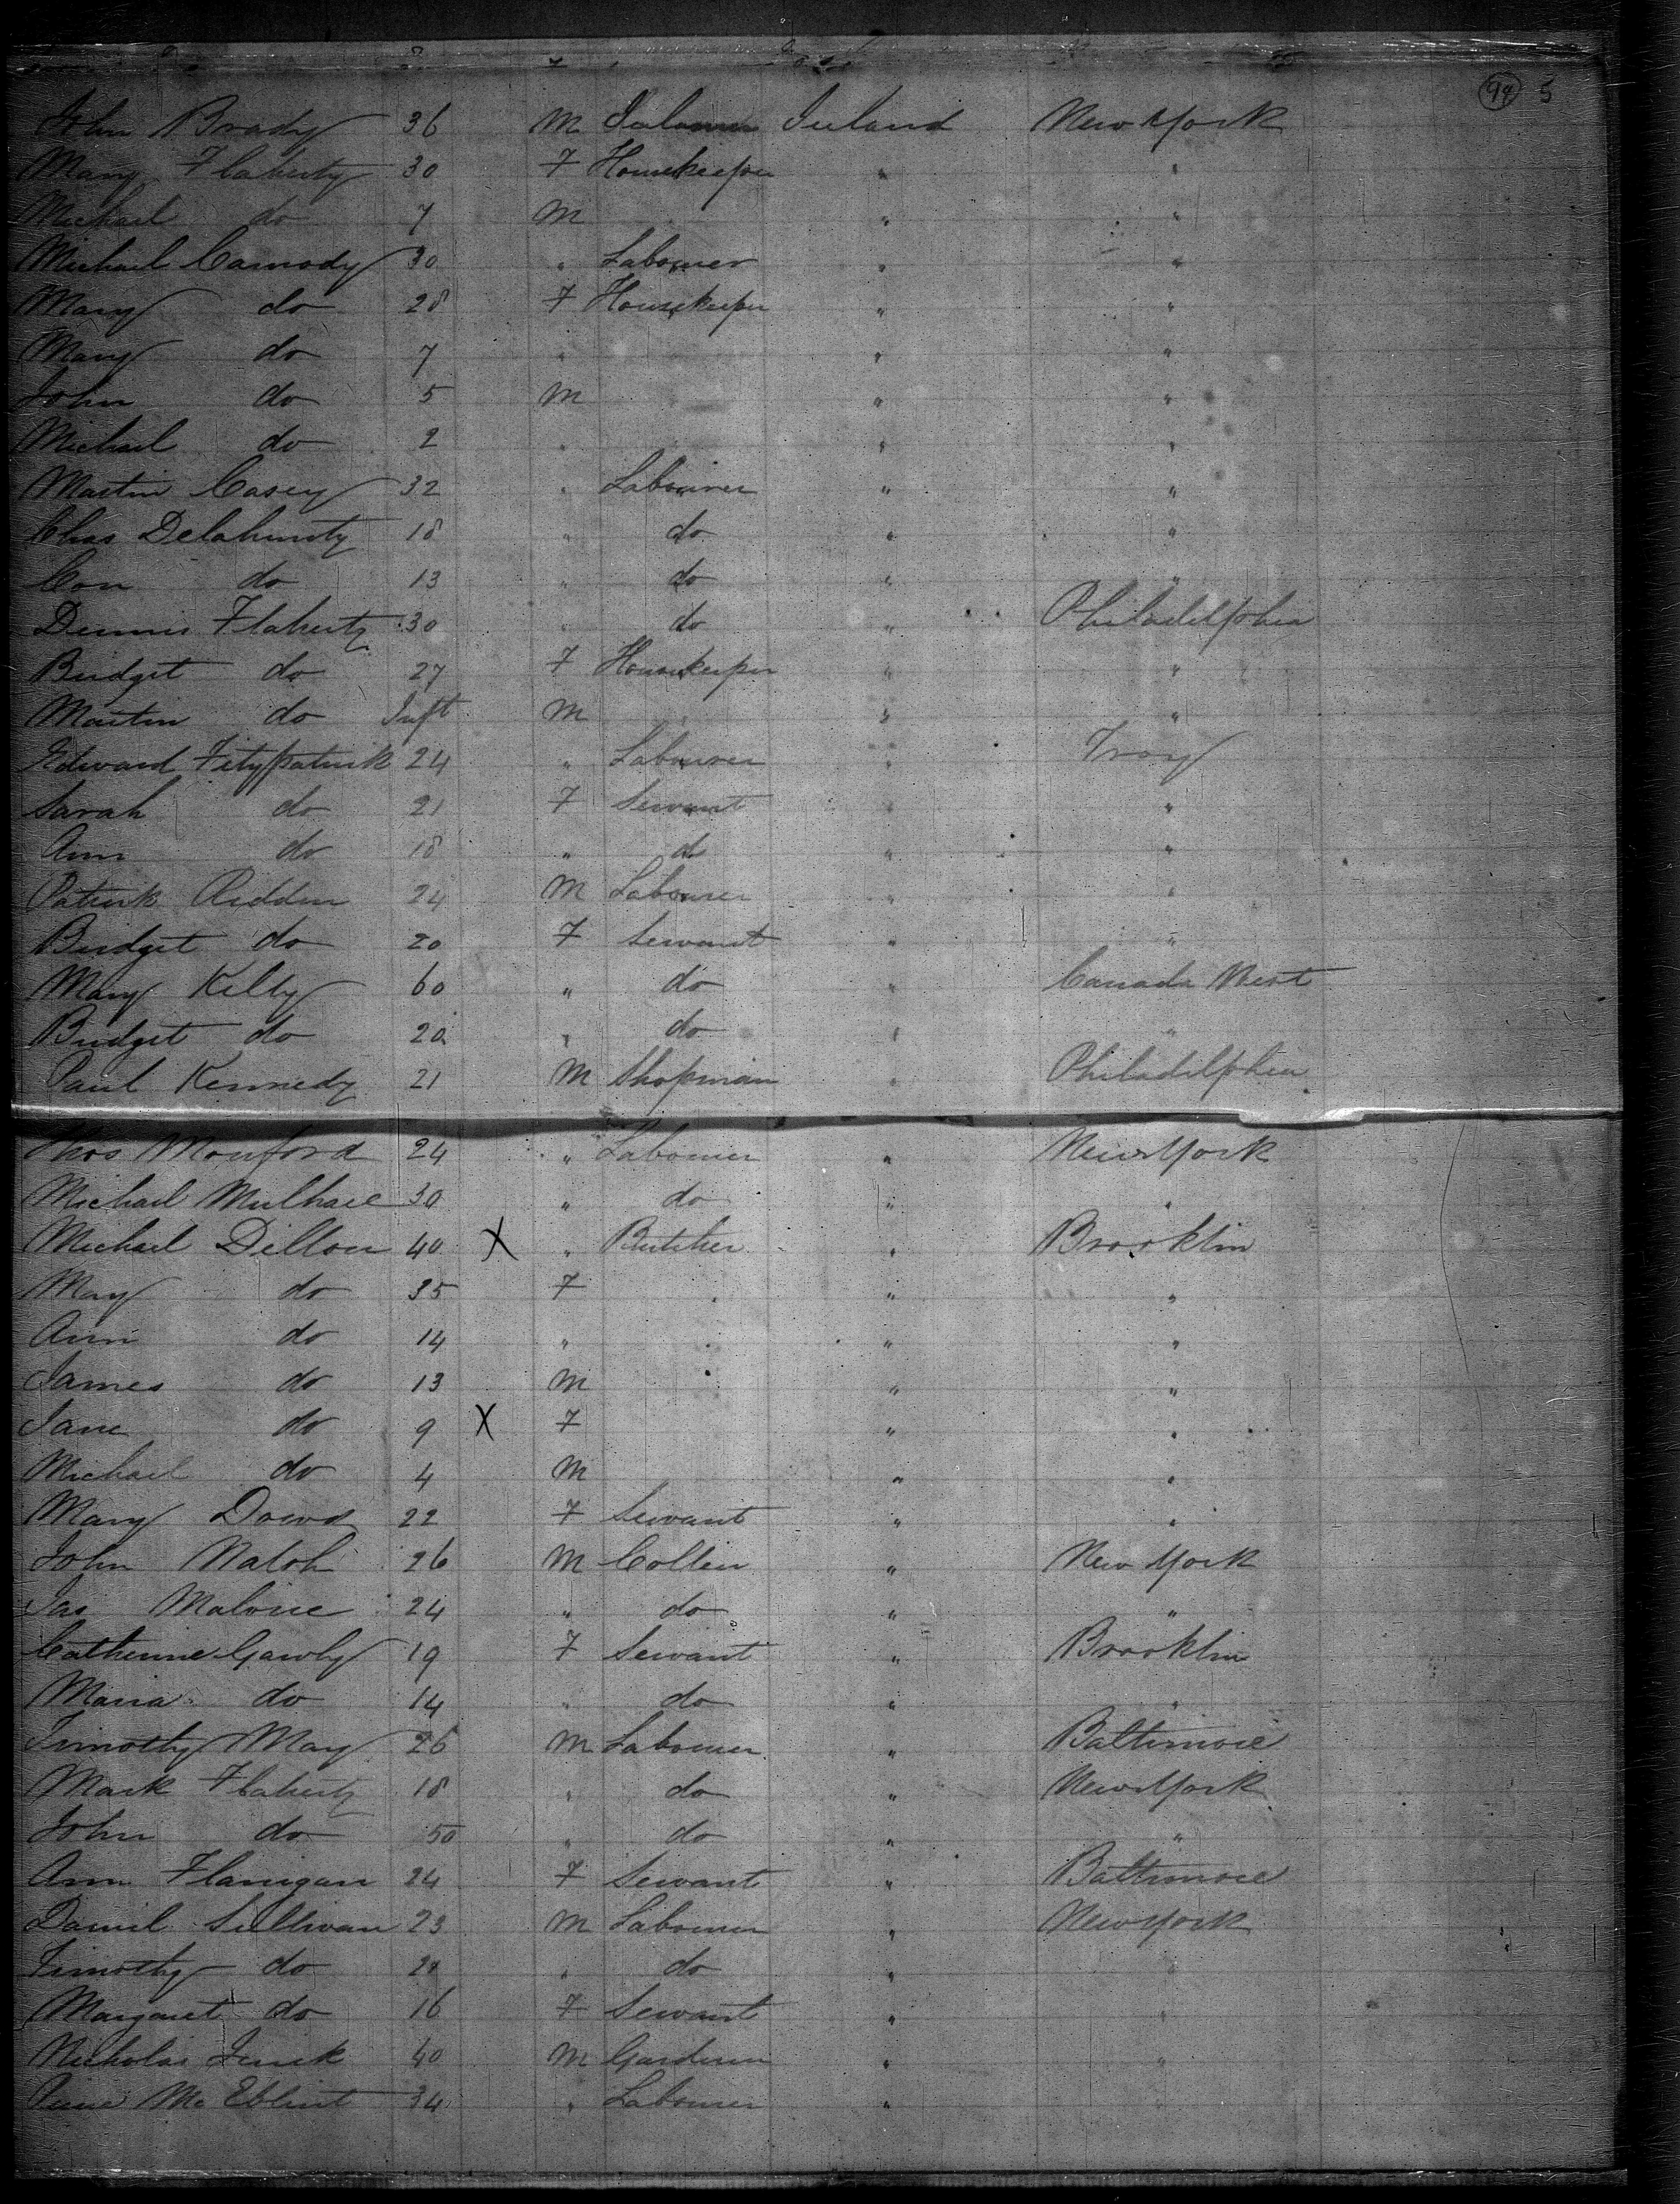 94 5
John Brady 36 M Ireland New York
Mary Flaherty 30 F Housekeeper " "
Michael do 7 M " "
Michael Camody 30 " Labourer " "
Mary do 28 F Housekeeper " "
Mary do 7 " " "
John do 5 M " "
Michael do 2 " " "
Martin Casey 32 " Labourer " "
Chas Delahunty 18 " do " "
Con do 13 " do " "
Dennis Flaherty 30 " do " Philadelphia
Bridget do 27 F Housekeeper " "
Martin do Inft M " "
Edward Fitzpatrick 24 " Labourer " Troy
Sarah do 21 F Servant " "
Ann do 18 " d " "
Patrick Ridden 24 M Labourer " "
Bridget do 20 F Servant " "
Mary Kelly 60 " do " Canada West
Bridget do 20 " do " "
Paul Kennedy 21 M Shopman " Philadelphia
Thos Monford 24 " Labourer " New York
Michael Mulhall 30 " do " "
Michael Dillon 40 X " Butcher " Brooklin
Mary do 35 F " "
Ann do 14 " " "
James do 13 M " "
Jane do 9 X F " "
Michael do 4 M " "
Mary Dowd 22 F Servant " "
John 26 M Collier " New York
Jas Malone 24 " do " "
Catherine Gawly 19 F Servant " Brooklin
Maria do 14 " do " "
Timothy May 26 M Labourer " Baltimore
Mark Flaherty 18 " do " New York
John do 50 " do " "
Ann Flanigan 24 F Servant " Baltimore
Daniel Sullivan 23 M Labourer " New York
Timothy do " do " "
Margaret do 16 F Servant " "
Nicholas 40 M Gardener " "
Mc 34 " Labourer "